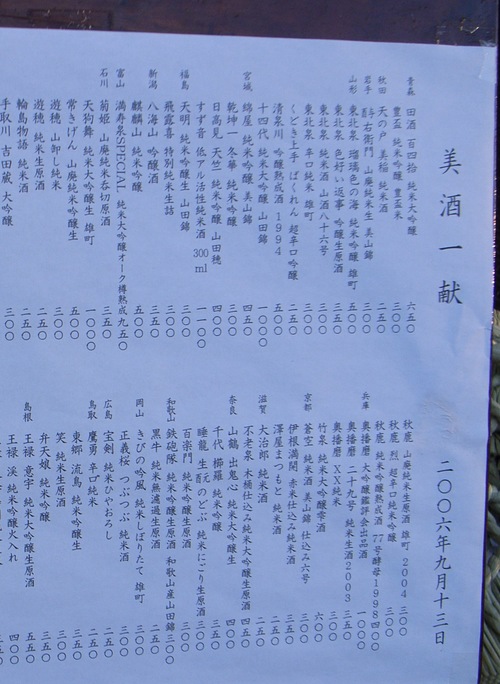 美酒一献
二〇〇六年九月十三日
青森 田酒 百四拾 純米大吟醸 六五〇
豊盃 純米吟醸 豊盃米 三〇〇
秋田 天の戸 美稲 純米酒 二五〇
岩手 酉与右衛門 山廃純米生 美山錦 三〇〇
山形 東北泉 瑠璃色の海 純米吟醸 雄町 五〇〇
東北泉 色好い返事 吟醸生原酒 三五〇
東北泉 純米酒 山酒八十六号 三〇〇
東北泉 辛口純米 雄町 三〇〇
くどき上手 ばくれん 超辛口吟醸 二五〇
清泉川 吟醸熟成酒 1994 五〇〇
十四代 純米大吟醸 山田錦 一〇〇〇
宮城 綿屋 純米吟醸 美山錦 四五〇
乾坤一 冬華 純米吟醸 三〇〇
日高見 天竺 純米吟醸 山田穂 四〇〇
すず音 低アル活性純米酒 300ml 一一〇〇
福島 天明 純米吟醸生 山田錦 三〇〇
飛露喜 特別純米生詰 三〇〇
新潟 八海山 吟醸酒 四五〇
麒麟山 純米吟醸 五〇〇
富山 満寿泉SPECIAL 純米大吟醸オーク樽熟成 九五〇
石川 菊姫 山廃純米呑切原酒 三五〇
天狗舞 純米大吟醸生 雄町 一〇〇〇
常きげん 山廃純米吟醸生 五〇〇
遊穂 純米生原酒 二五〇
遊穂 山卸し純米 二五〇
輪島物語 純米酒 三〇〇
手取川 吉田蔵 大吟醸 三〇〇
秋鹿 山廃純米生原酒 雄町 2004 三〇〇
秋鹿 烈 超辛口純米吟醸 三〇〇
秋鹿 純米吟醸熟成酒 77号酵母1998 四〇〇
兵庫 奥播磨 大吟醸鑑評会出品酒 一〇〇〇
奥播磨 二十九号 純米生酒2003 三五〇
奥播磨 XX純米 三〇〇
竹泉 純米大吟醸雫酒 六〇〇
京都 蒼空 純米酒 美山錦 仕込み六号 三〇〇
伊根満開 赤米仕込み純米酒 三五〇
澤屋まつもと 純米酒 二五〇
滋賀 大治郎 純米酒 二五〇
不老泉 木桶仕込み純米大吟醸生原酒 四五〇
奈良 山鶴 出鬼心 純米大吟醸生 四〇〇
千代 櫛羅 純米吟醸 三五〇
睡龍 生酛のどぶ 純米にごり生原酒 三〇〇
百楽門 純米吟醸生原酒 三〇〇
和歌山 鉄砲隊 純米吟醸生原酒 和歌山産山田錦 三〇〇
黒牛 純米無濾過生原酒 二五〇
岡山 きびの吟風 純米しぼりたて 雄町 三〇〇
正義桜 つぶつぶ 純米酒 三〇〇
広島 宝剣 純米ひやおろし 二五〇
鳥取 鷹勇 辛口純米 二五〇
東郷 流鳥 純米吟醸生 三五〇
笑 純米生原酒 三〇〇
弁天娘 純米吟醸 三五〇
島根 王禄 意宇 純米大吟醸生原酒 五五〇
王禄 渓 純米吟醸火入れ 四〇〇